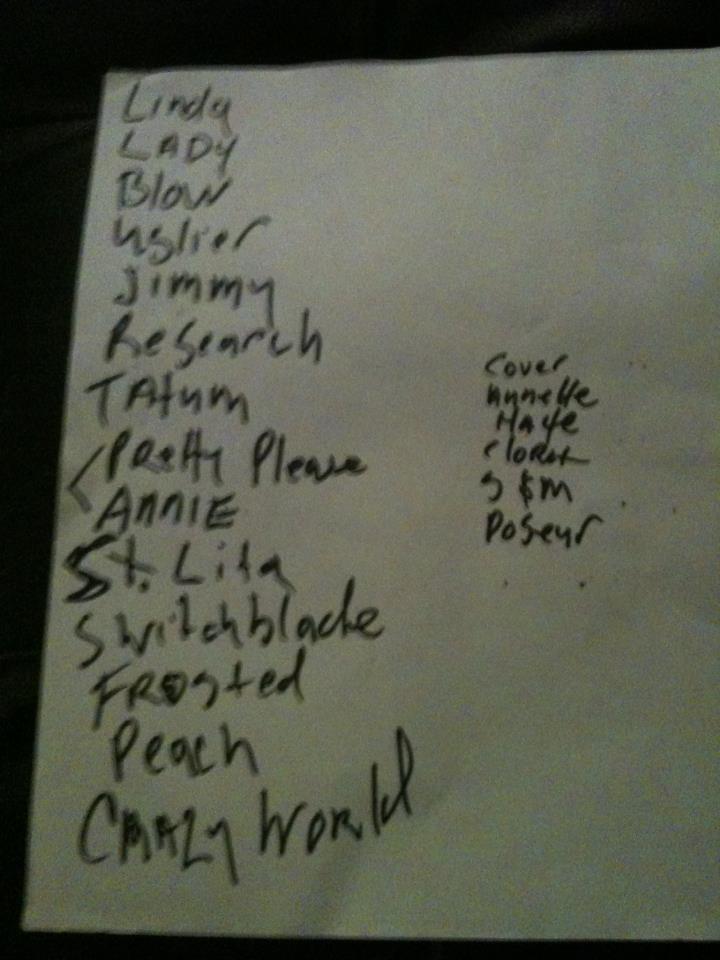 Linda
LADY
Blow
Uglier
Jimmy
Research
TAtum
PRetty Please
ANNIE
St. Lita
Switchblade
FROsted
Peach
CRAZy WORld
Cover
Annette
HAte
Closet
S $ M
PoSeur